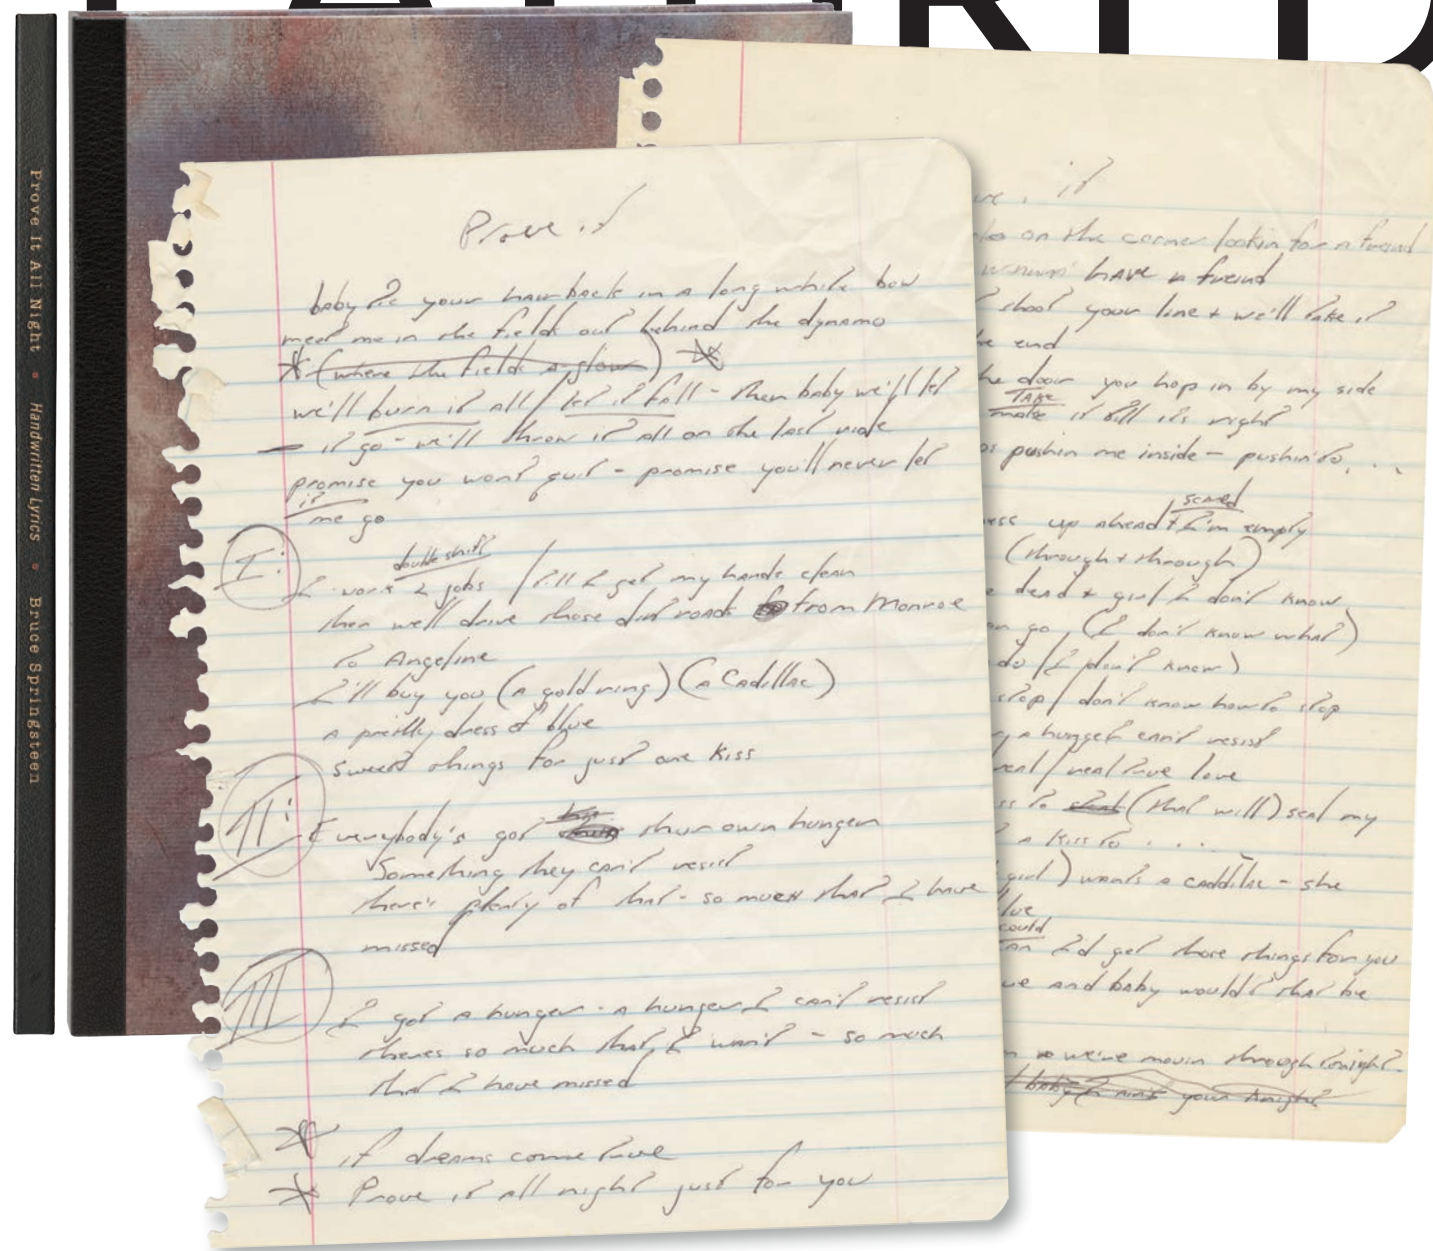 Prove It All Night • Handwritten Lyrics • Bruce Springsteen
Prove it
baby tie your hair back in a long white bow
meet me in the fields out behind the dynamo
* (where the fields a glow) *
we'll burn it all / let it fall - then baby we'll let
it go - we'll throw it all on the last ride
promise you won't quit - promise you'll never let
it
me go
I:
double shift
I work 2 jobs / till I get my hands clean
then we'll drive those dirt roads from Monroe
to Angeline
I'll buy you (a gold ring) (a Cadillac)
a pretty dress of blue
sweet things for just one kiss
II:
Everybody's got their own hunger
Something they can't resist
there's plenty of that - so much that I have
missed
III
I got a hunger - a hunger I can't resist
theres so much that I want - so much
that I have missed
* if dreams came true
* Prove it all night just for you
it
on the corner lookin for a freind
have a freind
shoot your line + we'll take it
end
the door you hop in by my side
Take
make it till it's right
pushin me inside - pushin to...
scared
up ahead + I'm empty
(through + through)
dead + girl I don't know
go, (I don't know what)
do / I don't know)
stop / don't know how to stop
a hunger can't resist
real / real true love
to (that will) seal my
a kiss to ....
girl) wants a caddilac - she
blue
could
I'd get those things for you
and baby wouldn't that be
we're movin through tonight
baby I ain't your knight